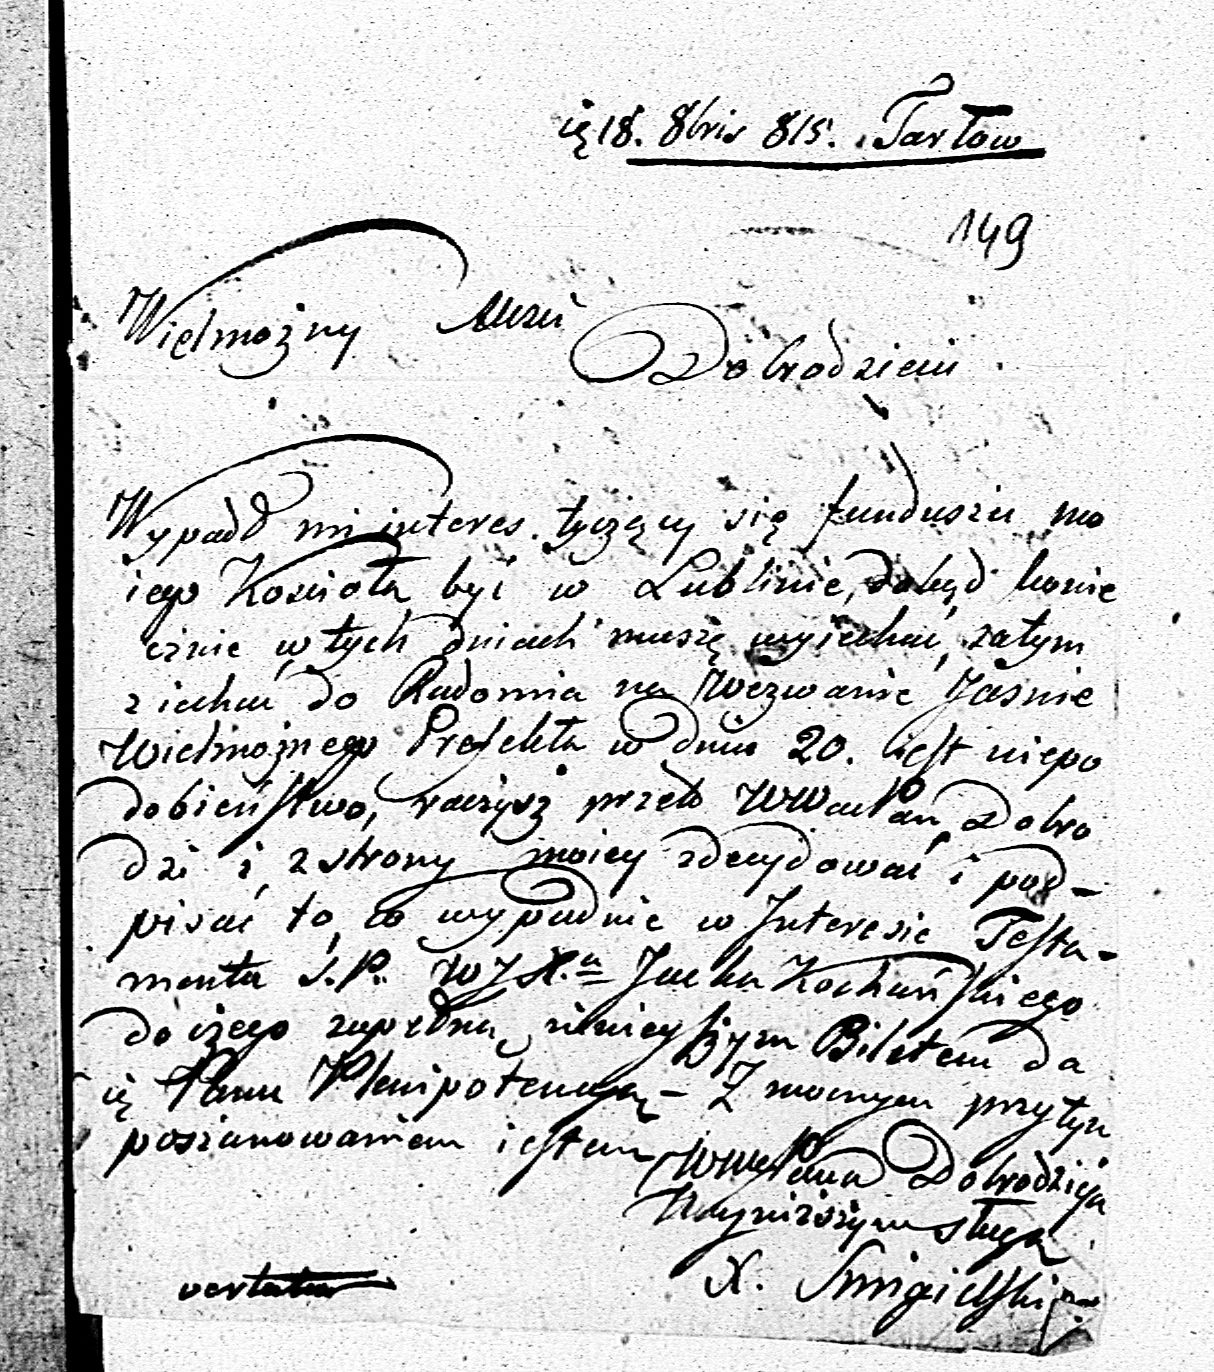 18. 8bris 815. Tarłow
149
Wielmożny Mości
Dobrodzieiu
Wypadł mi interes tyczący się funduszu mo
iego Kościoła być w Lublinie, dokąd konie
cznie w tych dniach muszę wyiechać, zatym
ziechać do Radomia na Wezwanie Jaśnie
Wielmożnego Prefekta w dniu 20. iest niepo
dobieństwo, raczysz przeto WWać Pan Dobro
dzi i z strony moiey zdecydować i pod-
pisać to, co wypadnie w Interesie Testa-
mentu S. P. WJX.a Jacka Kochańskiego
do czego zupełną ninieyszym Biletem da
ię Panu Plenipotencyą – Z mocnym przytym
poszanowaniem iestem
WWćPana Dobrodzieja
Nayniższym sługą
X. Smigielski
vertatur